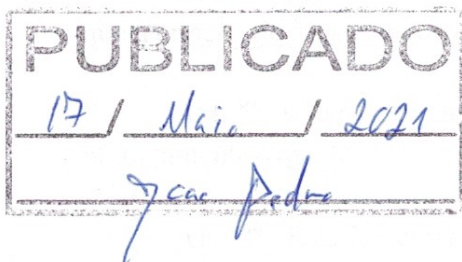 PUBLICADO
17 / Maio / 2021
Pedro